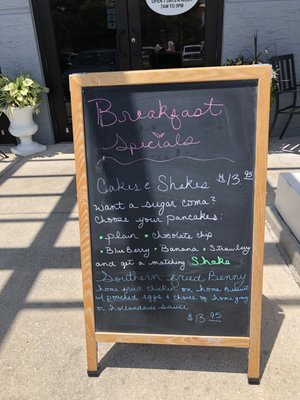 OPEN 7 DAYS A WEEK
7AM TO 3PM
Breakfast
Specials
Cakes & Shakes $13.95
Want a sugar coma?
Choose your Pancakes:
• plain • chocolate chip
• Blueberry • Banana • Strawberry
and get a matching Shake
Southern Fried Benny
home fried chicken on home biscuit
w/ poached eggs & choice of home gravy
or hollandaise sauce
$13.95